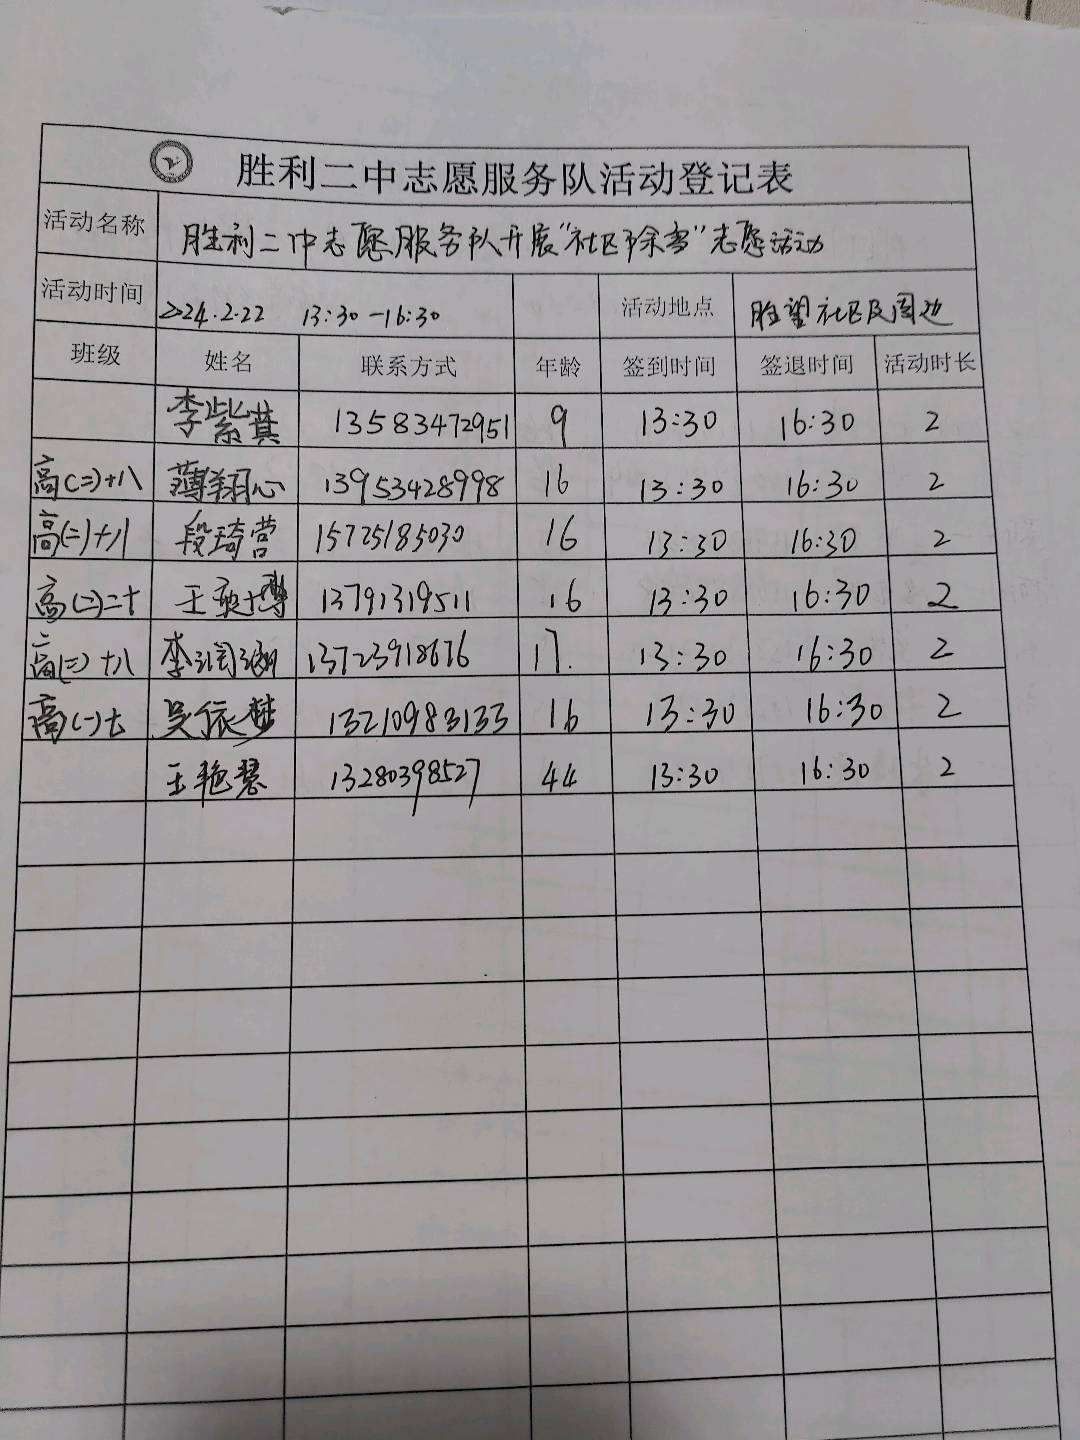 胜利二中志愿服务队活动登记表
活动名称 胜利二中志愿服务队开展“社区除雪”志愿活动
活动时间 2024.2.22 13:30-16:30 活动地点 胜望社区及周边
班级 姓名 联系方式 年龄 签到时间 签退时间 活动时长
李紫萁 13583472951 9 13:30 16:30 2
高(二)十八 薄翔心 13953428998 16 13:30 16:30 2
高(二)十八 段琦营 15725185030 16 13:30 16:30 2
高(二)二十 王 13791319511 16 13:30 16:30 2
高(二)十八 李润 13723918676 17. 13:30 16:30 2
高(一)七 吴依梦 13210983133 16 13:30 16:30 2
王艳慧 13280398527 44 13:30 16:30 2